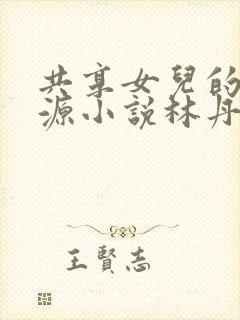 共享女兒的
源小說林丹
王賢志